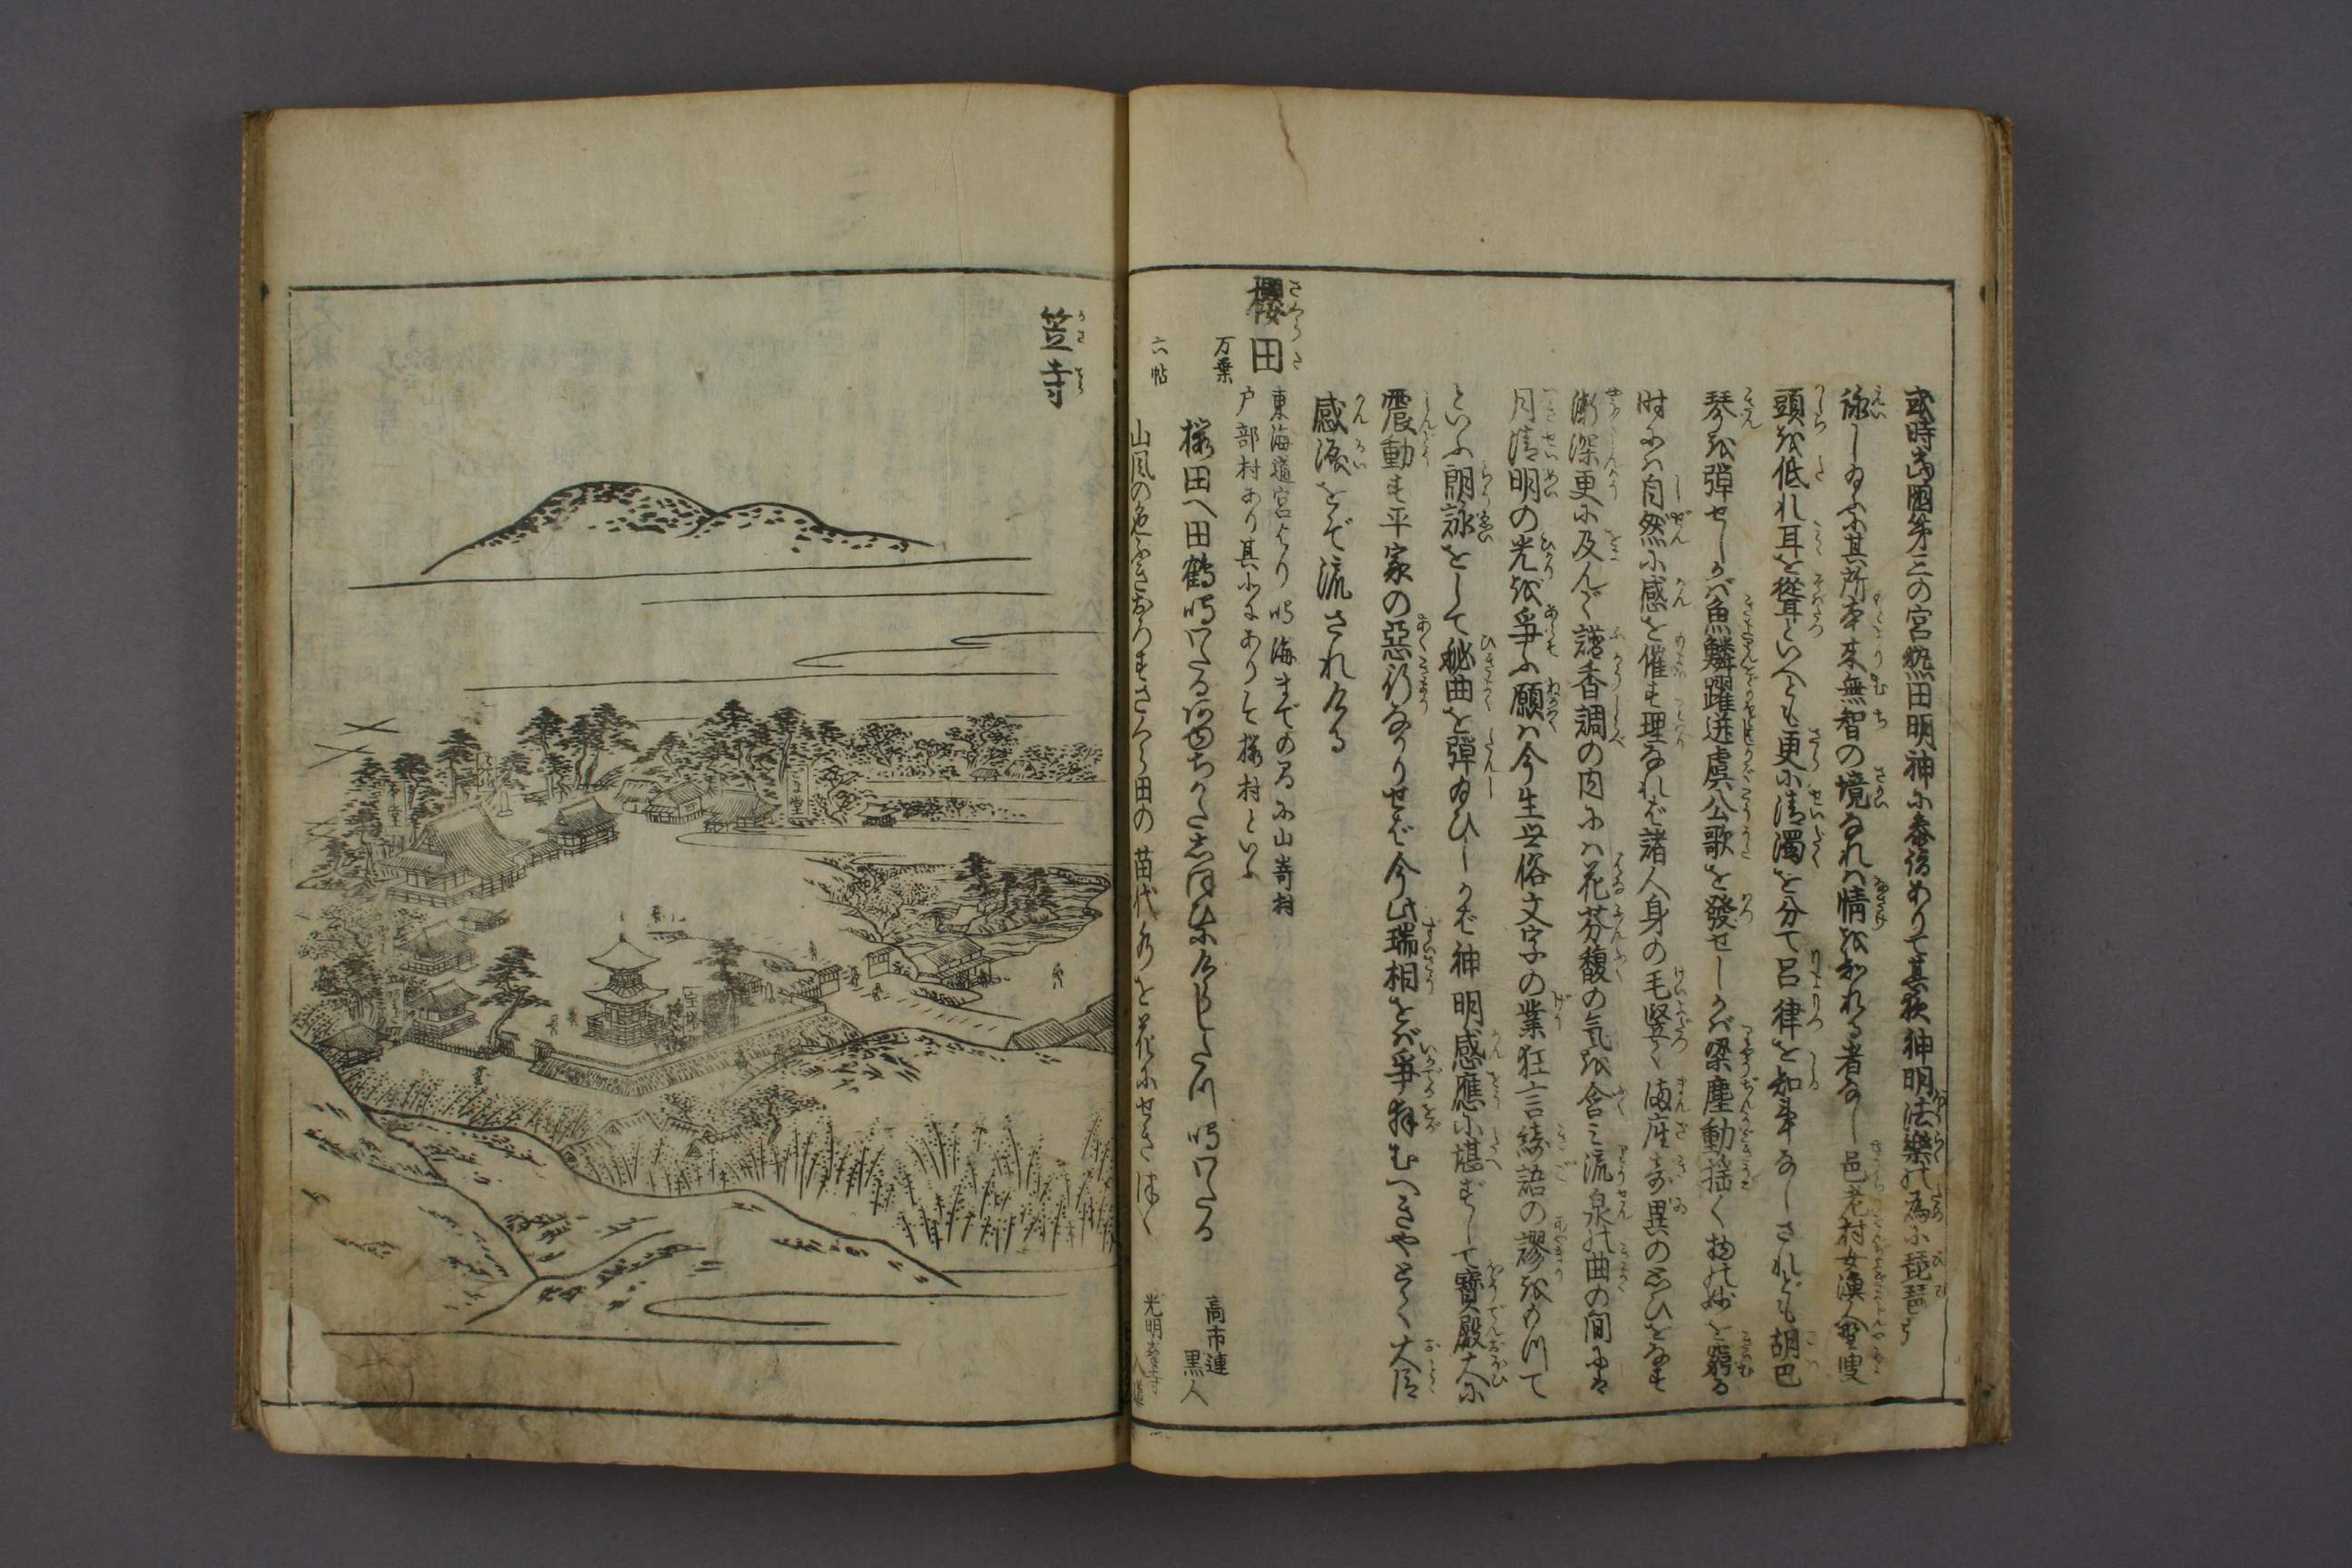 或時当国第三の宮熱田明神に参詣ありて其夜神明法樂の為に琵琶弓
詠し給ふに其所本来無智の境なれハ情を知れる者なし邑老村女漁人野叟
頭を低れ耳を聳といへとも更に清濁を分て呂律を知事なしされども胡巴
琴を弾せしかバ魚鱗躍迸虞公歌を發せしかバ梁塵動揺く物の妙を窮る
时にハ自然に感を催す理なれバ諸人身の毛竪て満座奇異の思ひをなす
漸深更に及んで諷香調の内にハ花芬馥の気を含ミ流泉の曲の間にハ
月清明の光を爭ふ願ハ今生世俗文字の業狂言綺語の謬をもつて
といふ朗詠をして秘曲を弾給ひしかバ神明感應に堪ずして寶殿大に
震動す平家の惡行なかりせバ今此瑞相をバ爭拜むへきやとて大臣
感涙をぞ流されける
櫻田
東海道宮より鳴海までの間に山崎村
戸部村あり其北にありて桜村といふ
万葉
桜田へ田鶴鳴わたるあゆちかた志ほひにけらしたつ鳴わたる
高市連
黒人
六帖
山風の色ふきおろすさくら田の苗代水を花にせきほく
光明峯寺
入道
笠寺
本堂